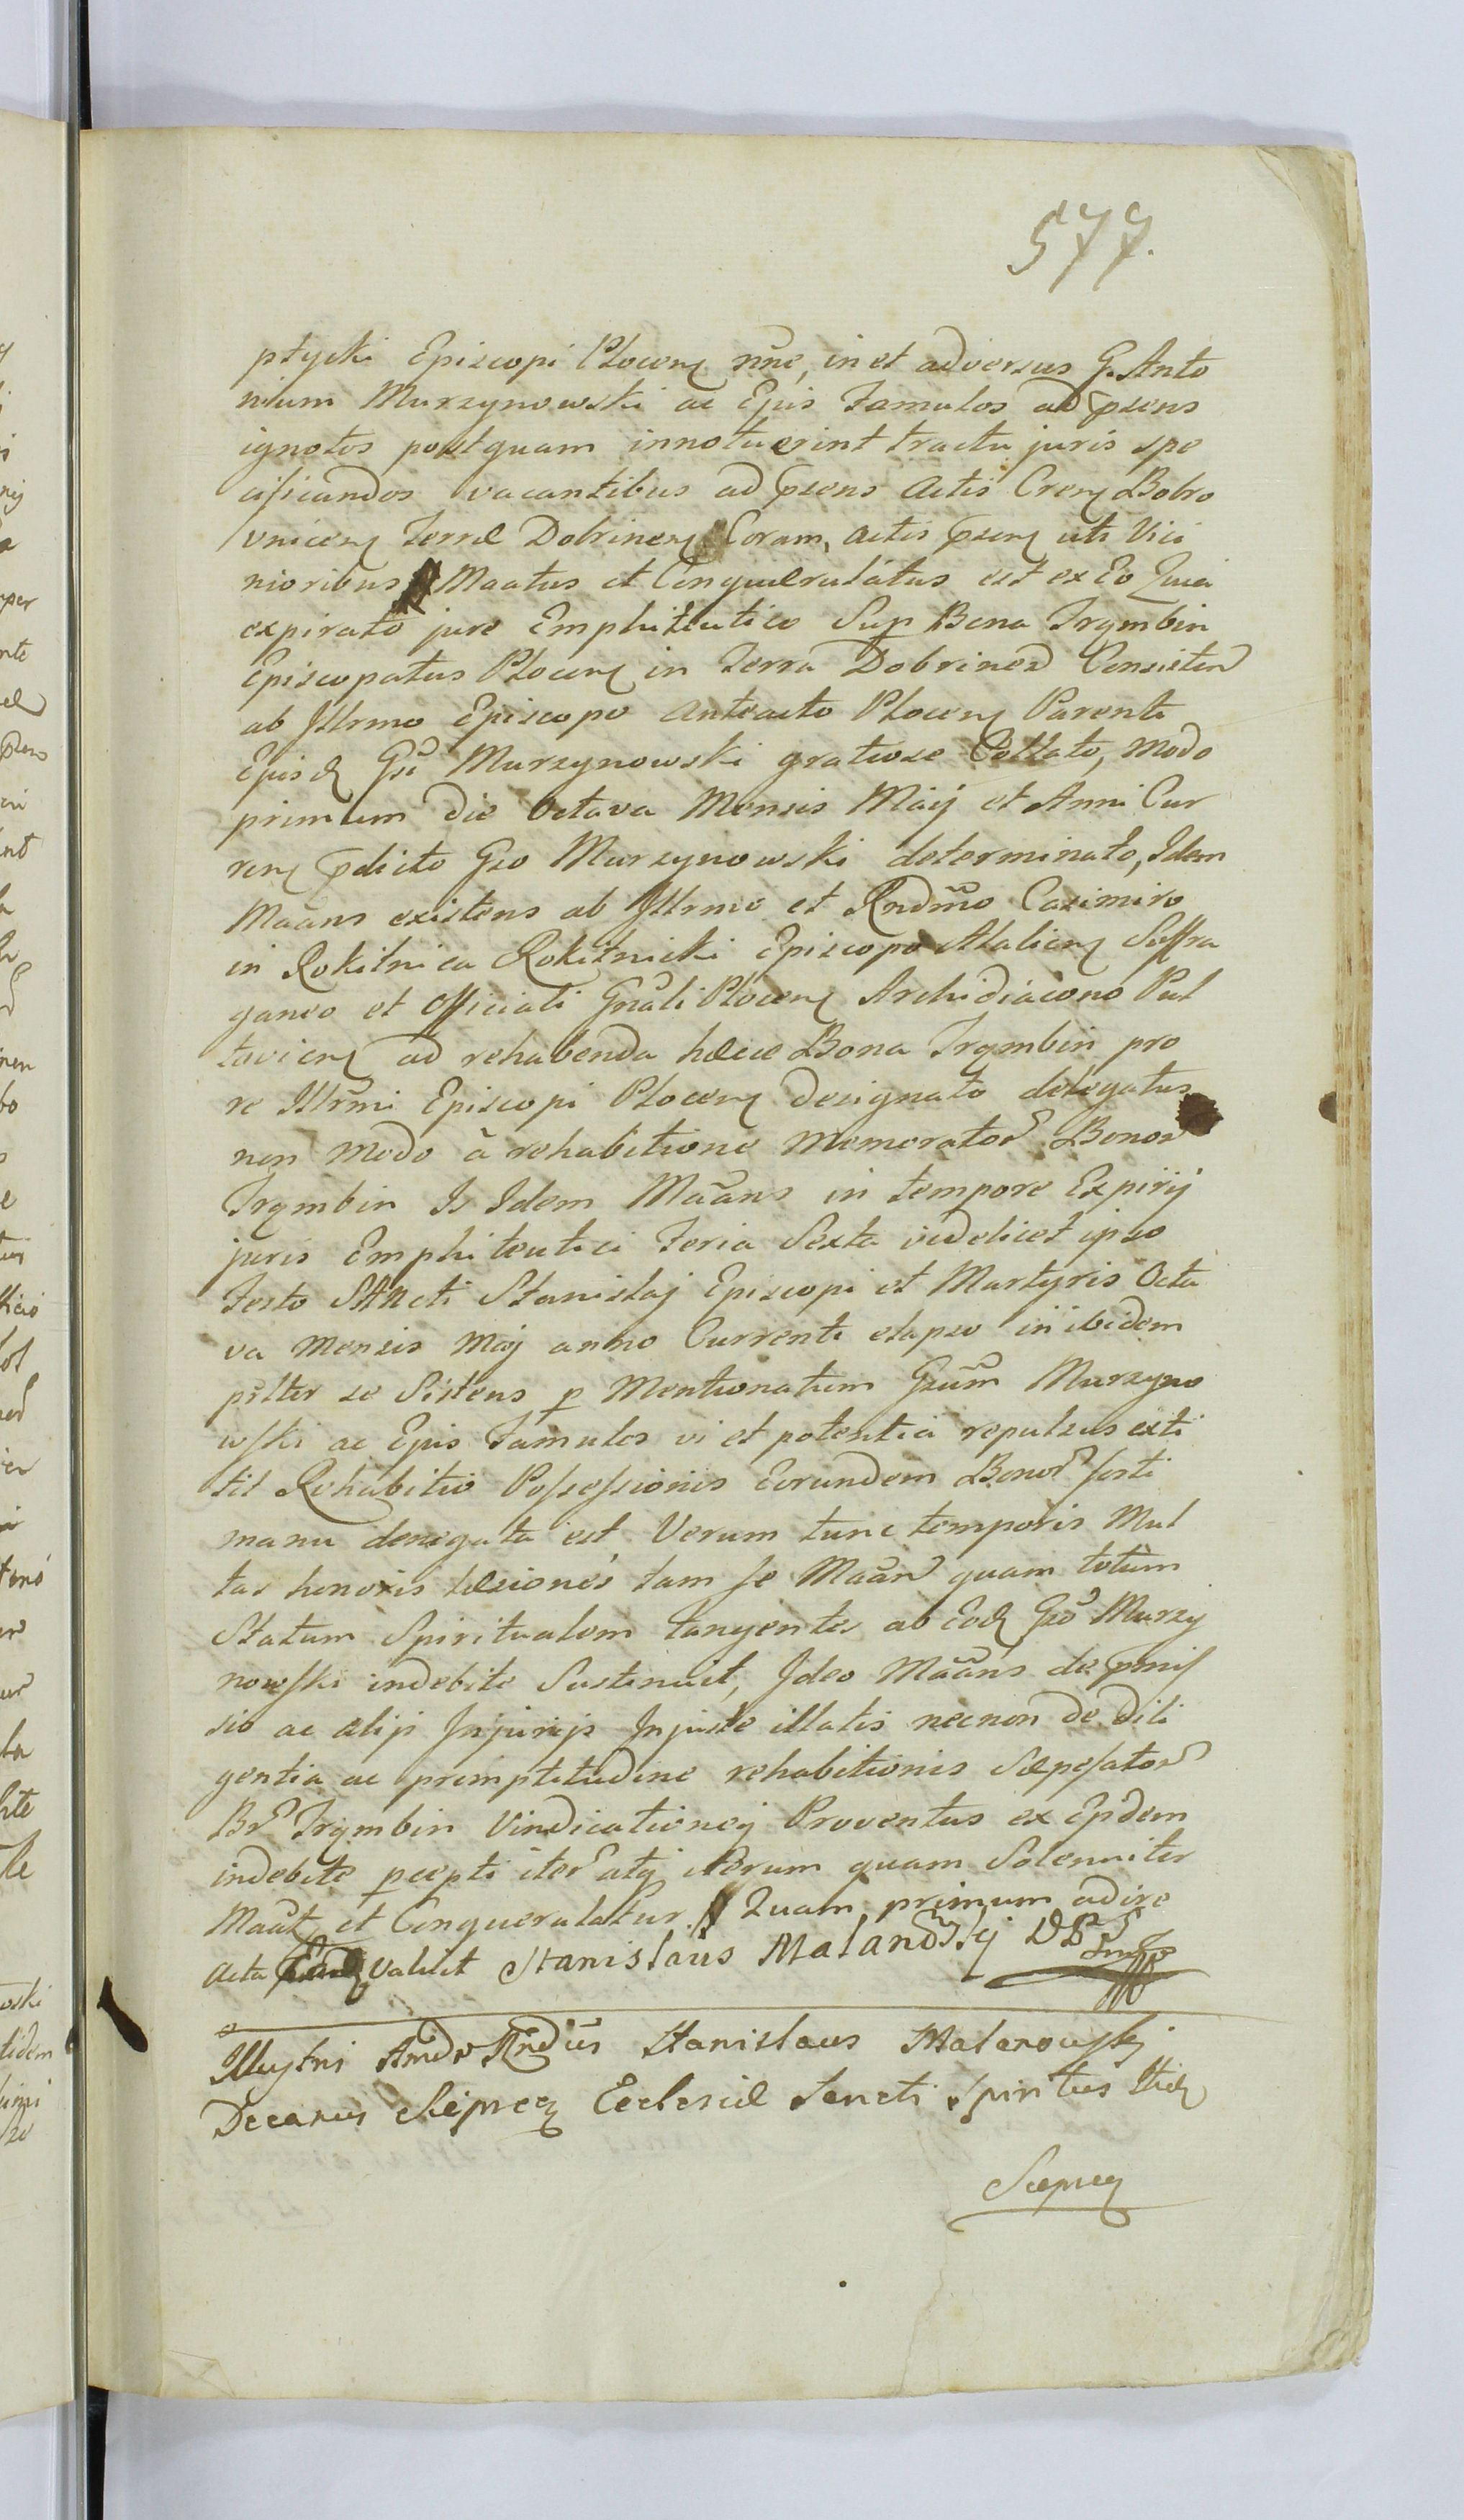 577.
ptycki Episcopi Plocen nne, in et adversus G. Anto
nium Murzynowski ac Ejus Famulos ad psens
ignotos postquam innotuerint tractu juris spe
cificandos vacantibus ad psens Actis Cren Bobro
vnicen Terræ Dobrinen Coram Actis psen uti Vici
nioribus Maatus et Conquærulatus est ex Eo Quia
expirato jure Emphiteutico Sup Bona Trąmbin
Episcopatus Plocen in Terra Dobrinen Consisten
ab Illrmo Episcopo Anteacto Plocen Parenti
Ejusd Gsi Murzynowski gratiose Collato, modo
primum die Octava Mensis Maij et Anni Cur
ren pdicto Gso Murzynowski determinato, Idem
Maans existens ab Illrmo et Rndmo Casimiro
in Rokitnica Rokitnicki Episcopo Maliceng Suffra
ganeo et Officiali Gnali Plocen Archidiacono Pul
tovien ad rehabenda hæcce Bona Trąmbin pro
re Illrmi Episcopi Plocen designato delegatus
non modo à rehabitione memorator Bonor
Trąmbin Is Idem Maans in tempore Expirij
juris Emphiteutici Feria Sexta videlicet ipso
Festo SAncti Stanislaj Episcopi et Martyris Octa
va Mensis Maj anno Currenti elapso inibidem
psltr se Sistens p Mentionatum Gsum Murzyno
wski ac Ejus Famulos vi et potentia repulsus exti
tit Rehabitio Possessionis Eorundem Bonor forti
manu denegata est Verum tunc temporis Mul
tas honoris læsiones tam se Maan quam totum
Statum Spiritualem tangentes ab Eod Gso Murzy
nowski indebite Sustinuit, Ideo Maans de pmis
sis ac alijs Injurijs Injuste illatis necnon de dili
gentia ac promptitudine rehabitionis Sæpefator
Br Trąmbin Vindicationeq Proventus ex Ejsdem
indebite pcepti iter atq iterum quam Solenniter
Maat et Conquerulatur Quam primum adire
Acta valuit Stanislaus Malanowskij
Illustris Andr Rndus Stanislaus Malanowskj
Decanus Sieprcen Ecclesiæ Sancti Spiritus
Sieprcen